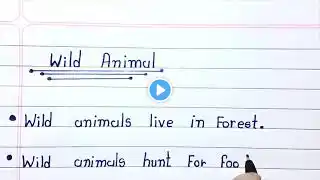 Wild Animal.
• Wild animals live in Forest.
• Wild animals hunt For foo